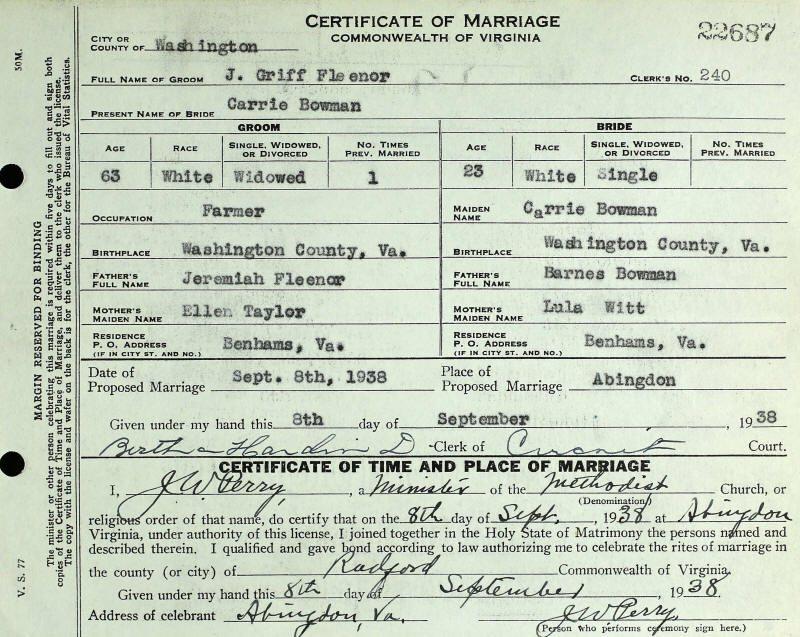 CERTIFICATE OF MARRIAGE
COMMONWEALTH OF VIRGINIA
22687
CITY OR COUNTY OF Washington
FULL NAME OF GROOM J. Griff Fleenor CLERK'S NO. 240
PRESENT NAME OF BRIDE Carrie Bowman
GROOM BRIDE
AGE RACE SINGLE, WIDOWED, OR DIVORCED NO. TIMES PREV. MARRIED AGE RACE SINGLE, WIDOWED, OR DIVORCED NO. TIMES PREV. MARRIED
63 White Widowed 1 23 White Single
OCCUPATION Farmer MAIDEN NAME Carrie Bowman
BIRTHPLACE Washington County, Va. BIRTHPLACE Washington County, Va.
FATHER'S FULL NAME Jeremiah Fleenor FATHER'S FULL NAME Barnes Bowman
MOTHER'S MAIDEN NAME Ellen Taylor MOTHER'S MAIDEN NAME Lula Witt
RESIDENCE P. O. ADDRESS (IF IN CITY ST. AND NO.) Benhams, Va. RESIDENCE P. O. ADDRESS (IF IN CITY ST. AND NO.) Benhams, Va.
Date of Proposed Marriage Sept. 8th, 1938 Place of Proposed Marriage Abingdon
Given under my hand this 8th day of September, 1938
Bertha Hardin D -Clerk of Circuit Court.
CERTIFICATE OF TIME AND PLACE OF MARRIAGE
I, J.W. Perry, a Minister of the Methodist Church, or
(Denomination)
religious order of that name, do certify that on the 8th day of Sept., 1938 at Abingdon
Virginia, under authority of this license, I joined together in the Holy State of Matrimony the persons named and
described therein. I qualified and gave bond according to law authorizing me to celebrate the rites of marriage in
the county (or city) of Radford Commonwealth of Virginia.
Given under my hand this 8th day of September, 1938
Address of celebrant Abingdon, Va. J.W. Perry.
(Person who performs ceremony sign here.)
50M.
MARGIN RESERVED FOR BINDING
The minister or other person celebrating this marriage is required within five days to fill out and sign both
copies of the Certificate of Time and Place of Marriage, and deliver them to the clerk who issued the license.
The copy with the license and wafer on the back is for the clerk, the other for the Bureau of Vital Statistics.
V. S. 77